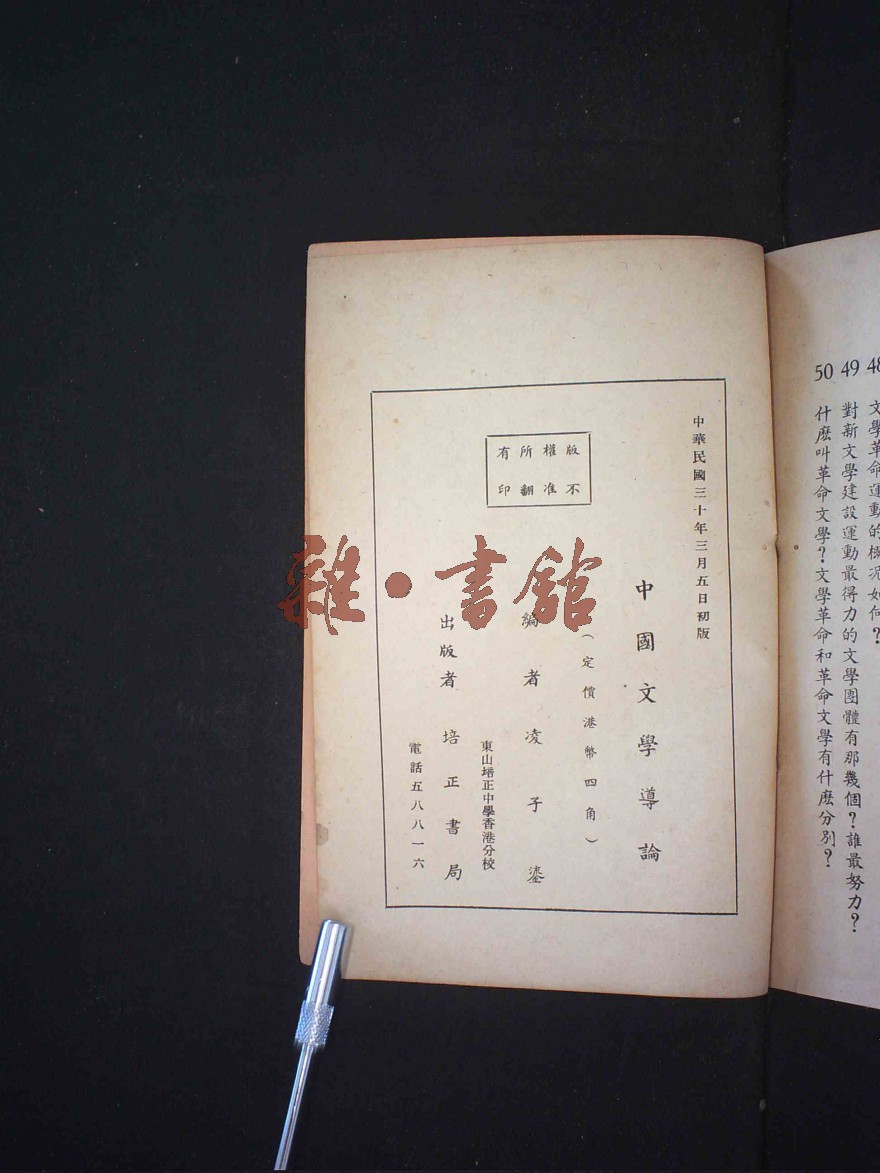 48 文學革命運動的概況如何?
49 對新文學建設運動最得力的文學團體有那幾個?誰最努力?
50 什麽叫革命文學?文學革命和革命文學有什麽分別?
中華民國三十年三月五日初版
中國文學導論
(定價港幣四角)
版權所有
不准翻印
編者凌子鎏
東山培正中學香港分校
出版者 培正書局
電話五八八一六
雜·書館